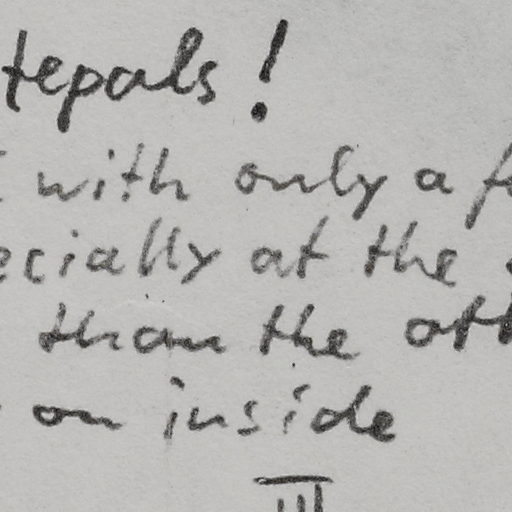 tepals!
with only a
ecially at the
than the oth
on inside
III